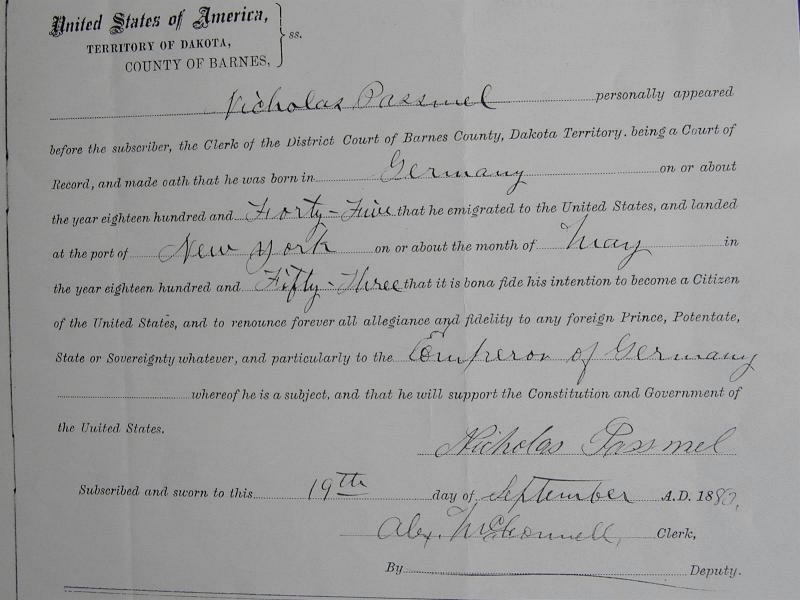 United States of America,
TERRITORY OF DAKOTA,
COUNTY OF BARNES,
ss.
Nicholas Passmel personally appeared
before the subscriber, the Clerk of the District Court of Barnes County, Dakota Territory. being a Court of
Record, and made oath that he was born in Germany on or about
the year eighteen hundred and Forty-Five that he emigrated to the United States, and landed
at the port of New York on or about the month of May in
the year eighteen hundred and Fifty-Three that it is bona fide his intention to become a Citizen
of the United States, and to renounce forever all allegiance and fidelity to any foreign Prince, Potentate,
State or Sovereignty whatever, and particularly to the Emperor of Germany
whereof he is a subject, and that he will support the Constitution and Government of
the United States.
Nicholas Passmel
Subscribed and sworn to this 19th day of September A.D. 18
Alex. McConnell, Clerk,
By Deputy.